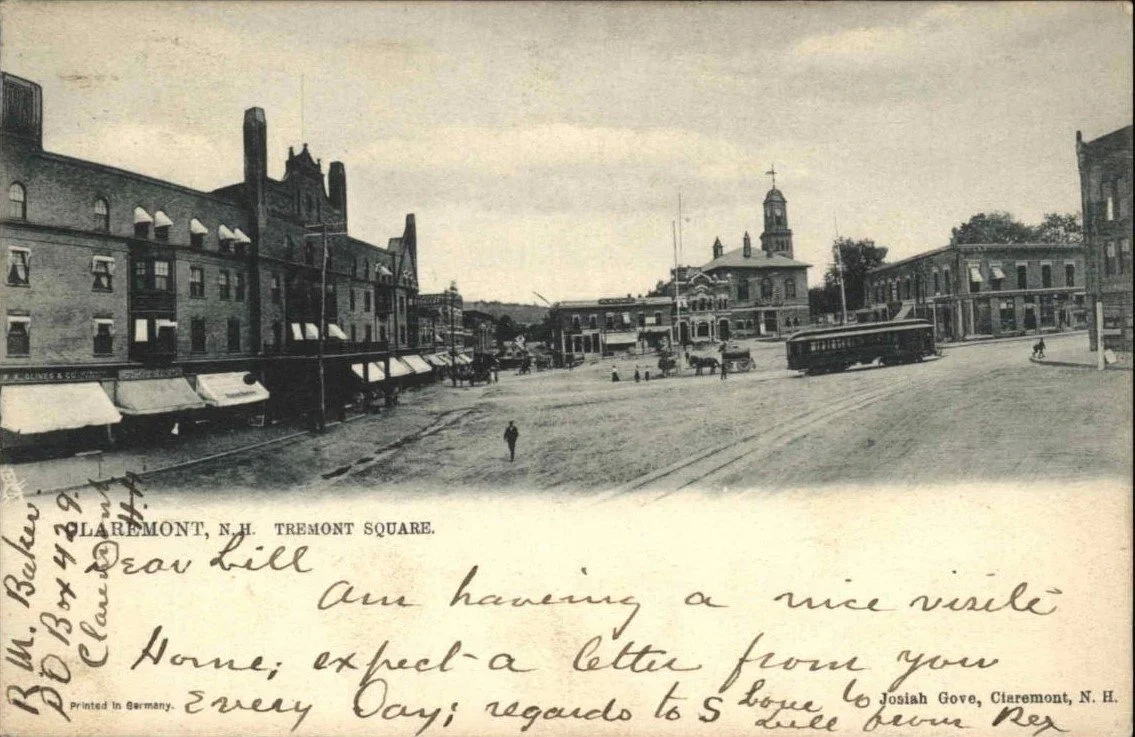 A. GLINES & CO.
CLAREMONT, N.H. TREMONT SQUARE.
Dear Lill
Am having a nice visite
Home; expect a letter from you
Every Day; regards to S Love to
Lill from Rex
R M. Baker.
PO Box 429.
Claremont
N.H
Printed in Germany.
Josiah Gove, Claremont, N. H.